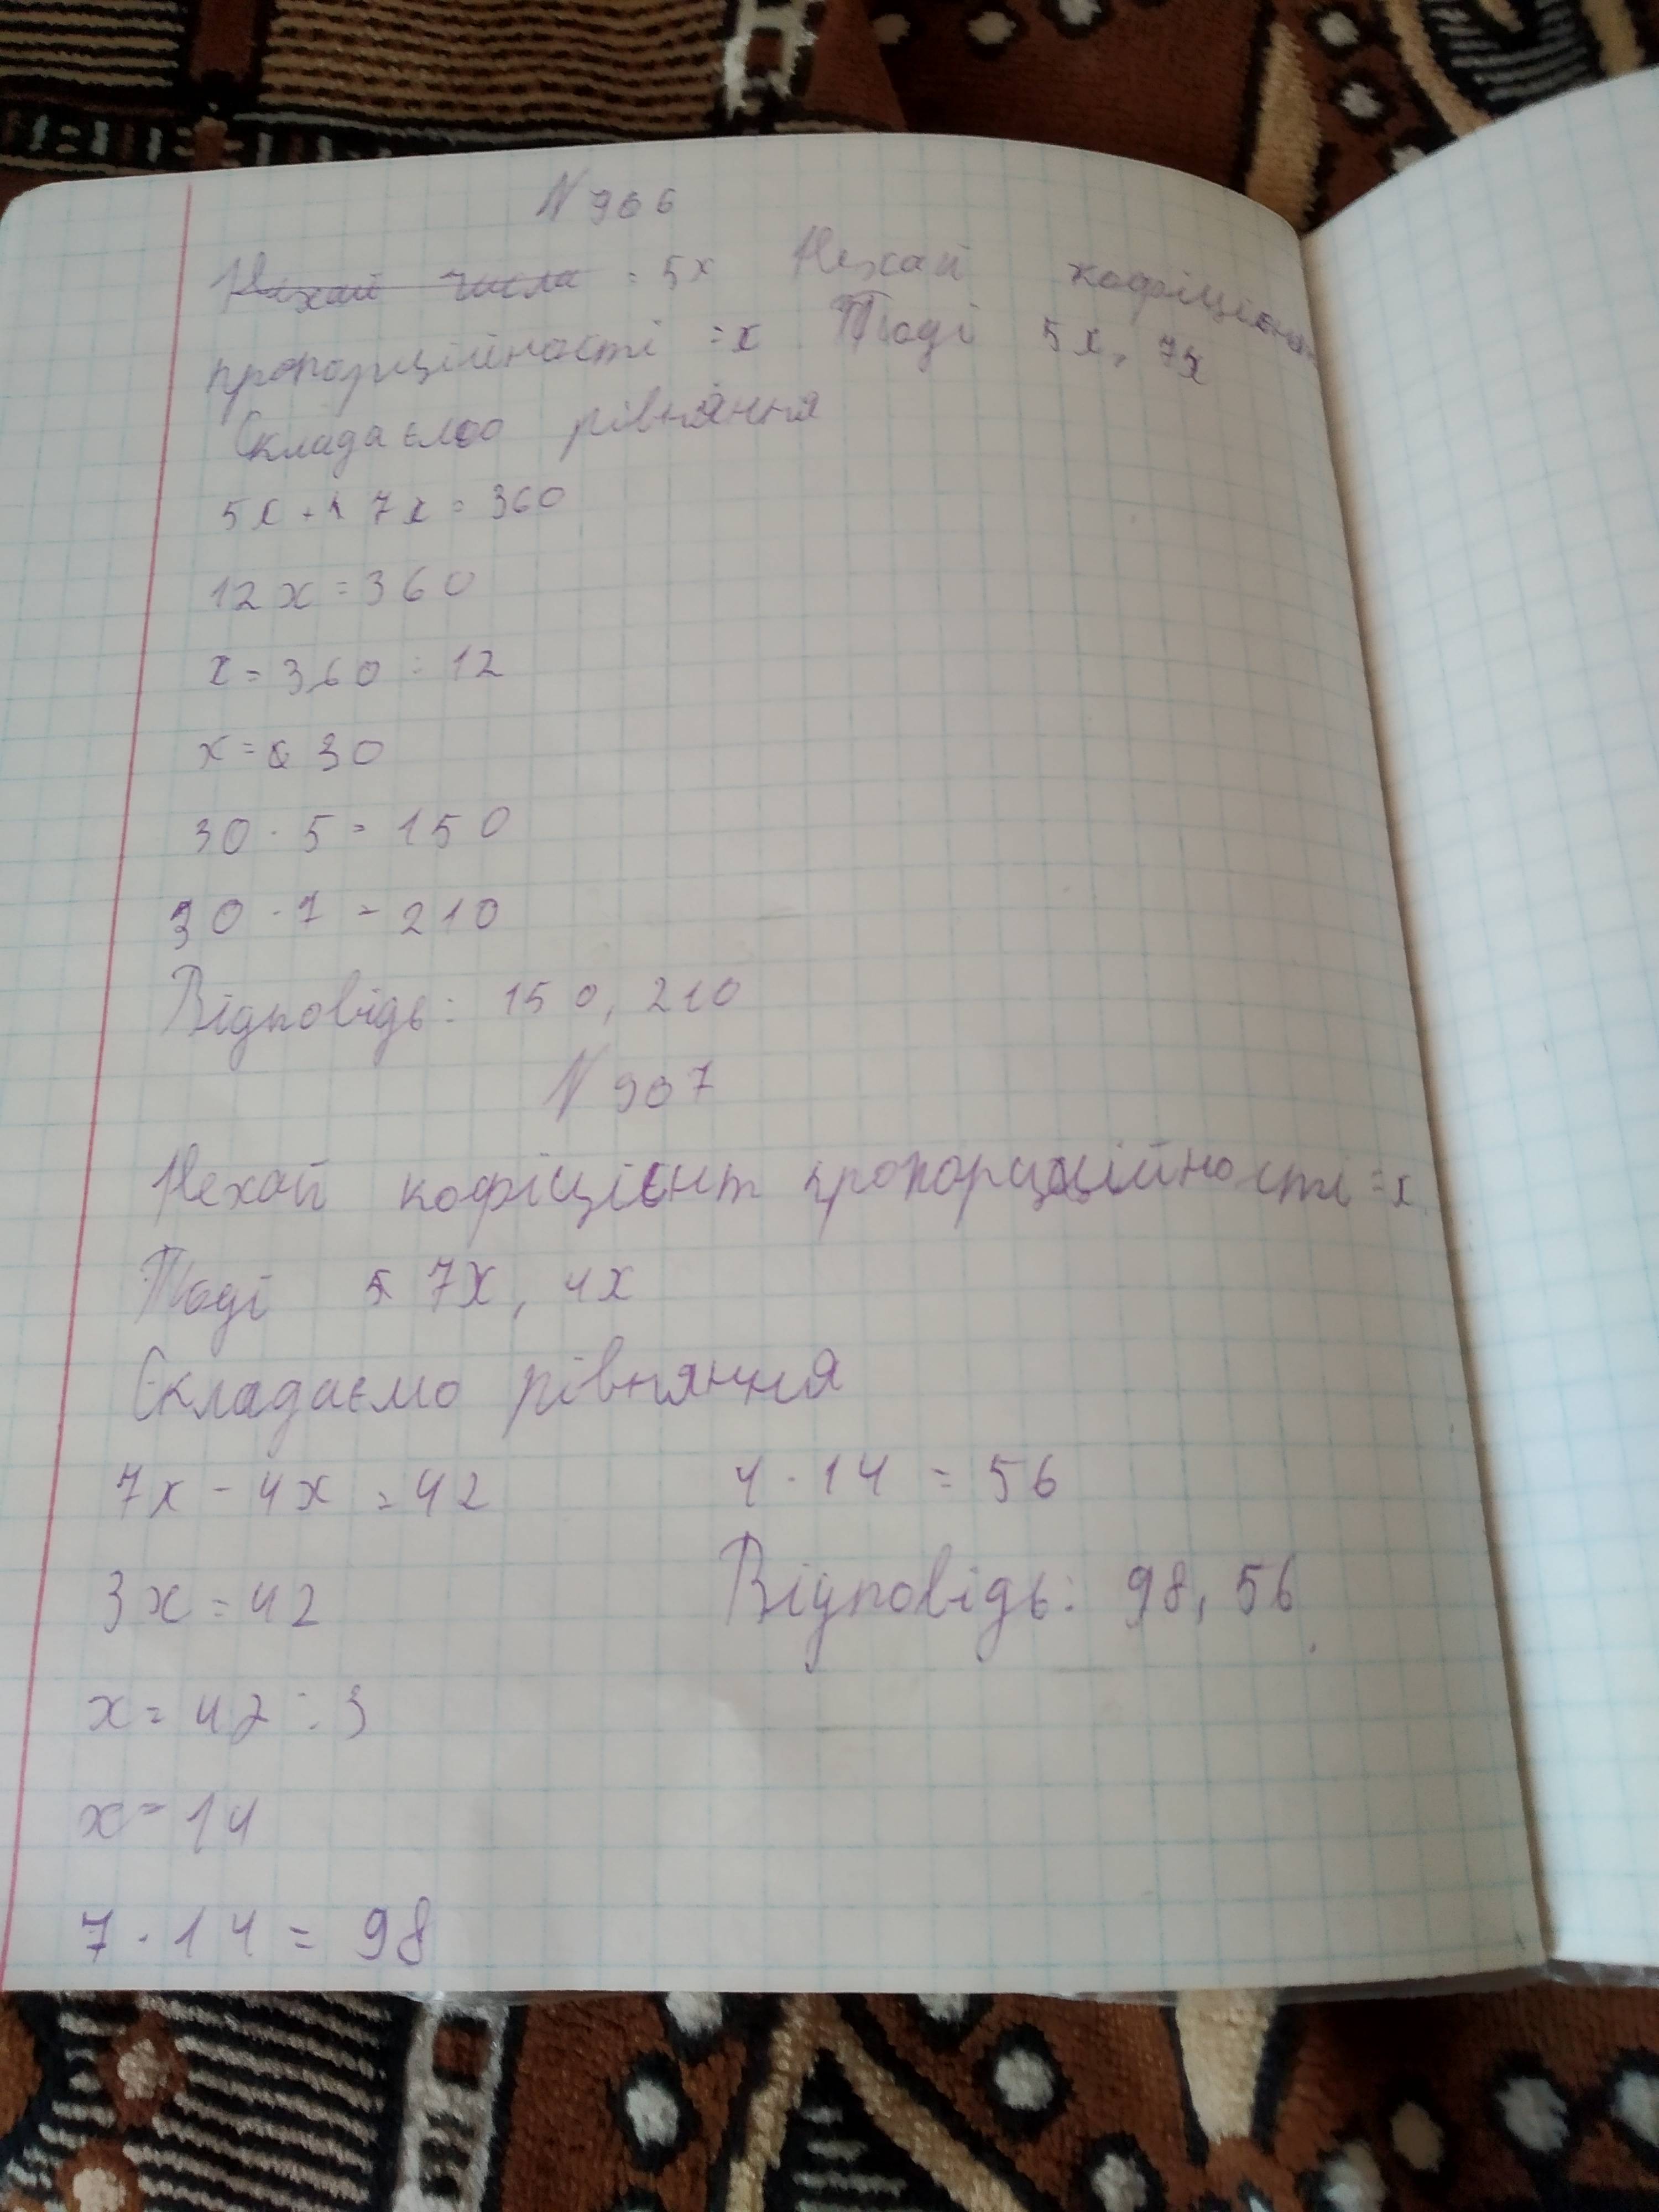 N 906
Нехай числа = 5x Нехай кофіцієнт
пропорційності = x Тоді 5x, 7x
Складаємо рівняння
5x + 7x = 360
12x = 360
x = 360 : 12
x = 30
30 · 5 = 150
30 · 7 = 210
Відповідь: 150, 210
N 907
Нехай кофіцієнт пропорційності = x
Тоді 7x, 4x
Складаємо рівняння
7x - 4x = 42
3x = 42
x = 42 : 3
x = 14
7 · 14 = 98
4 · 14 = 56
Відповідь: 98, 56